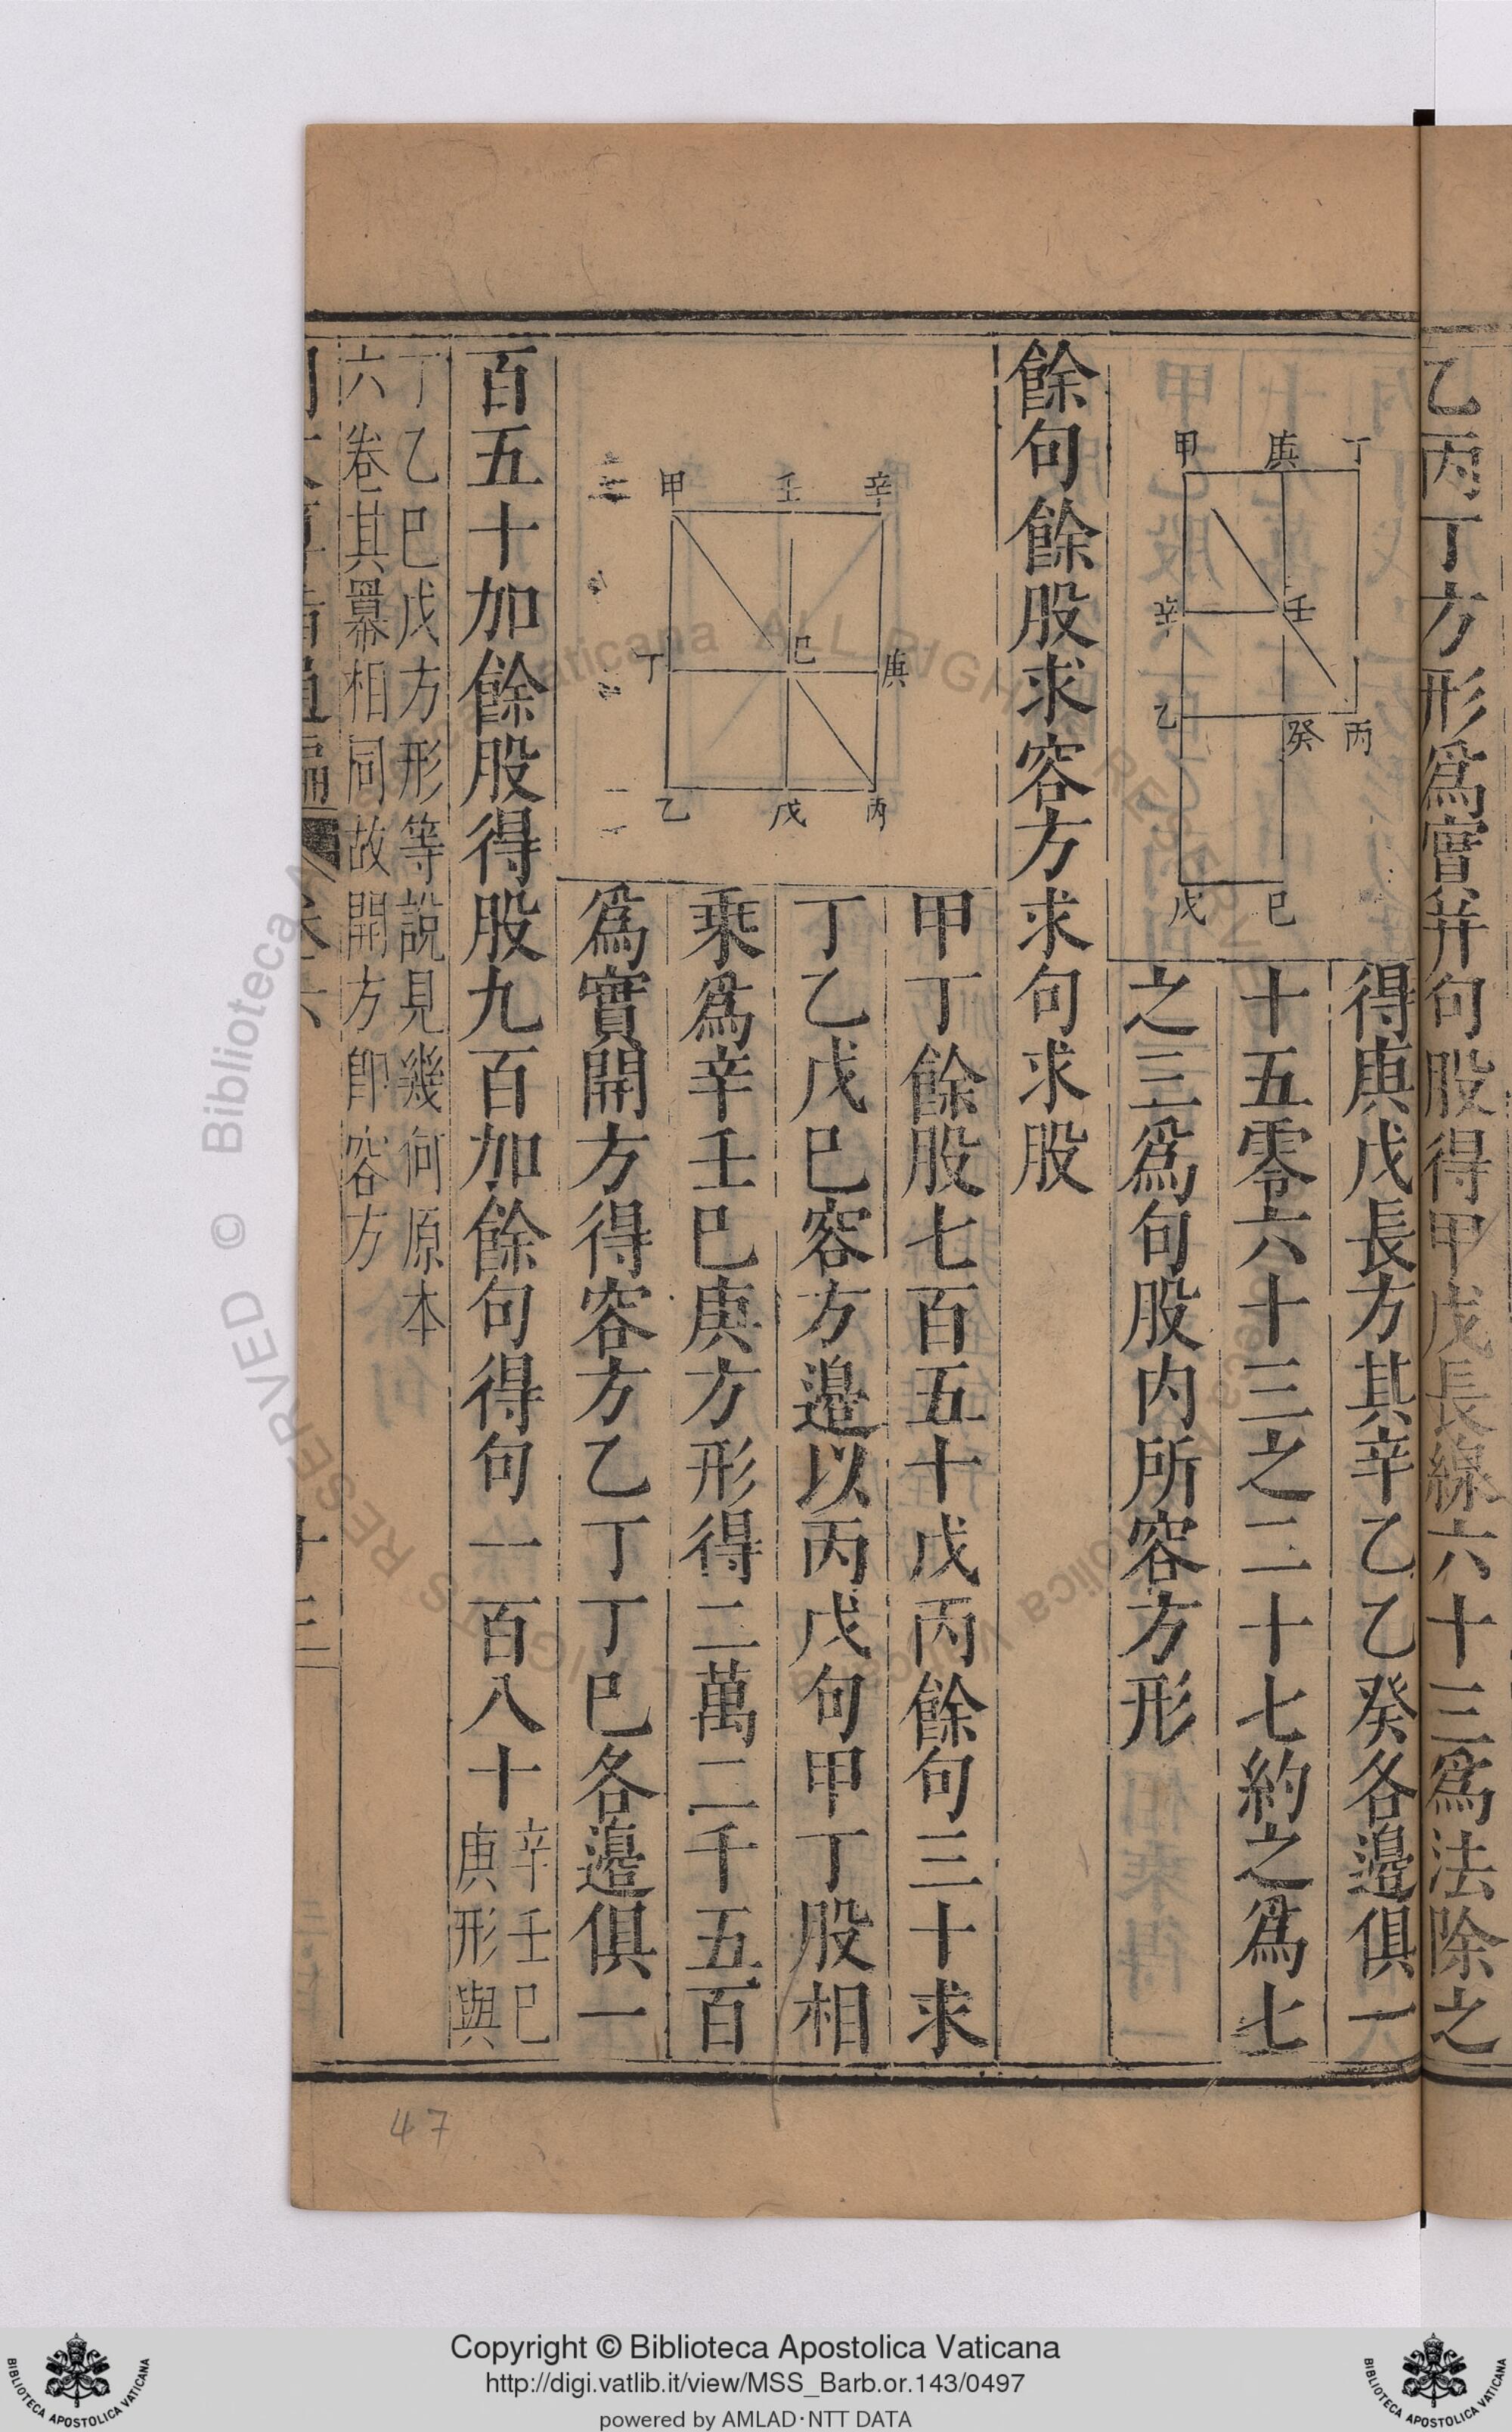 乙丙丁方形爲實并句股得甲戊長線六十三爲法除之
甲 庚 丁
辛 壬
乙 癸 丙
戊 巳
得庚戊長方其辛乙乙癸各邊俱一
十五零六十三之二十七約之爲七
之三爲句股内所容方形
餘句餘股求容方求句求股
甲 壬 辛
丁 巳 庚
乙 戊 丙
甲丁餘股七百五十戊丙餘句三十求
丁乙戊巳容方邊以丙戊句甲丁股相
乘爲辛壬巳庚方形得二萬二千五百
爲實開方得容方乙丁丁巳各邊俱一
百五十加餘股得股九百加餘句得句一百八十
辛壬巳
庚形與
丁乙巳戊方形等說見幾何原本
六卷其羃相同故開方卽容方
47
Biblioteca Apostolica Vaticana ALL RIGHTS RESERVED ©
Copyright © Biblioteca Apostolica Vaticana
http://digi.vatlib.it/view/MSS_Barb.or.143/0497
powered by AMLAD·NTT DATA
BIBLIOTECA APOSTOLICA VATICANA
BIBLIOTECA APOSTOLICA VATICANA